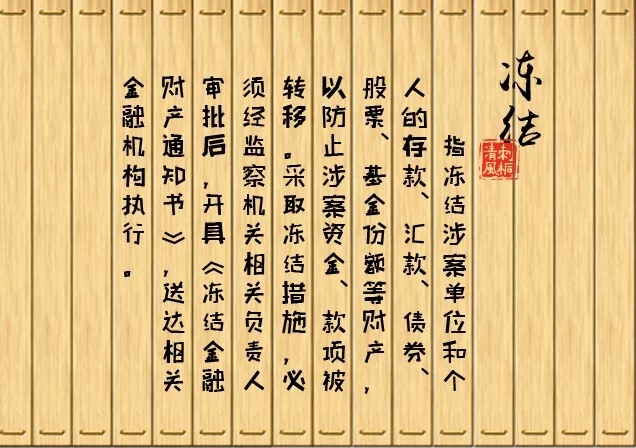 冻结
刺桐
清風
指冻结涉案单位和个
人的存款、汇款、债券、
股票、基金份额等财产，
以防止涉案资金、款项被
转移。采取冻结措施，必
须经监察机关相关负责人
审批后，开具《冻结金融
财产通知书》，送达相关
金融机构执行。